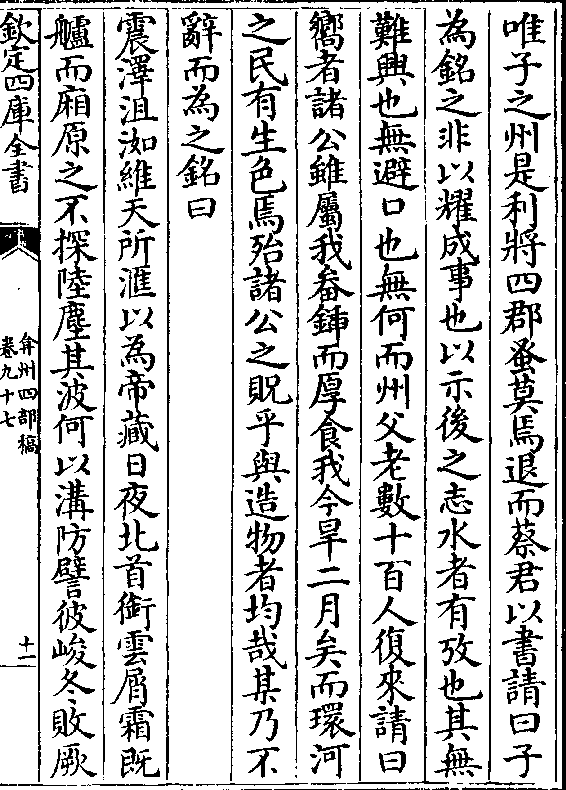 唯子之州是利將四郡蚤莫焉退而蔡君以書請曰子
為銘之非以耀成事也以示後之志水者有攷也其無
難興也無避口也無何而州父老數十百人復來請曰
嚮者諸公雖屬我畚鍤而厚食我今旱二月矣而環河
之民有生色焉殆諸公之貺乎與造物者均哉某乃不
辭而為之銘曰
震澤沮洳維天所滙以為帝藏日夜北首銜雲屑霜既
艫而廂原之不探陸塵其波何以溝防譬彼峻冬敗厥
欽定四庫全書
弇州四部稿
卷九十七
十一